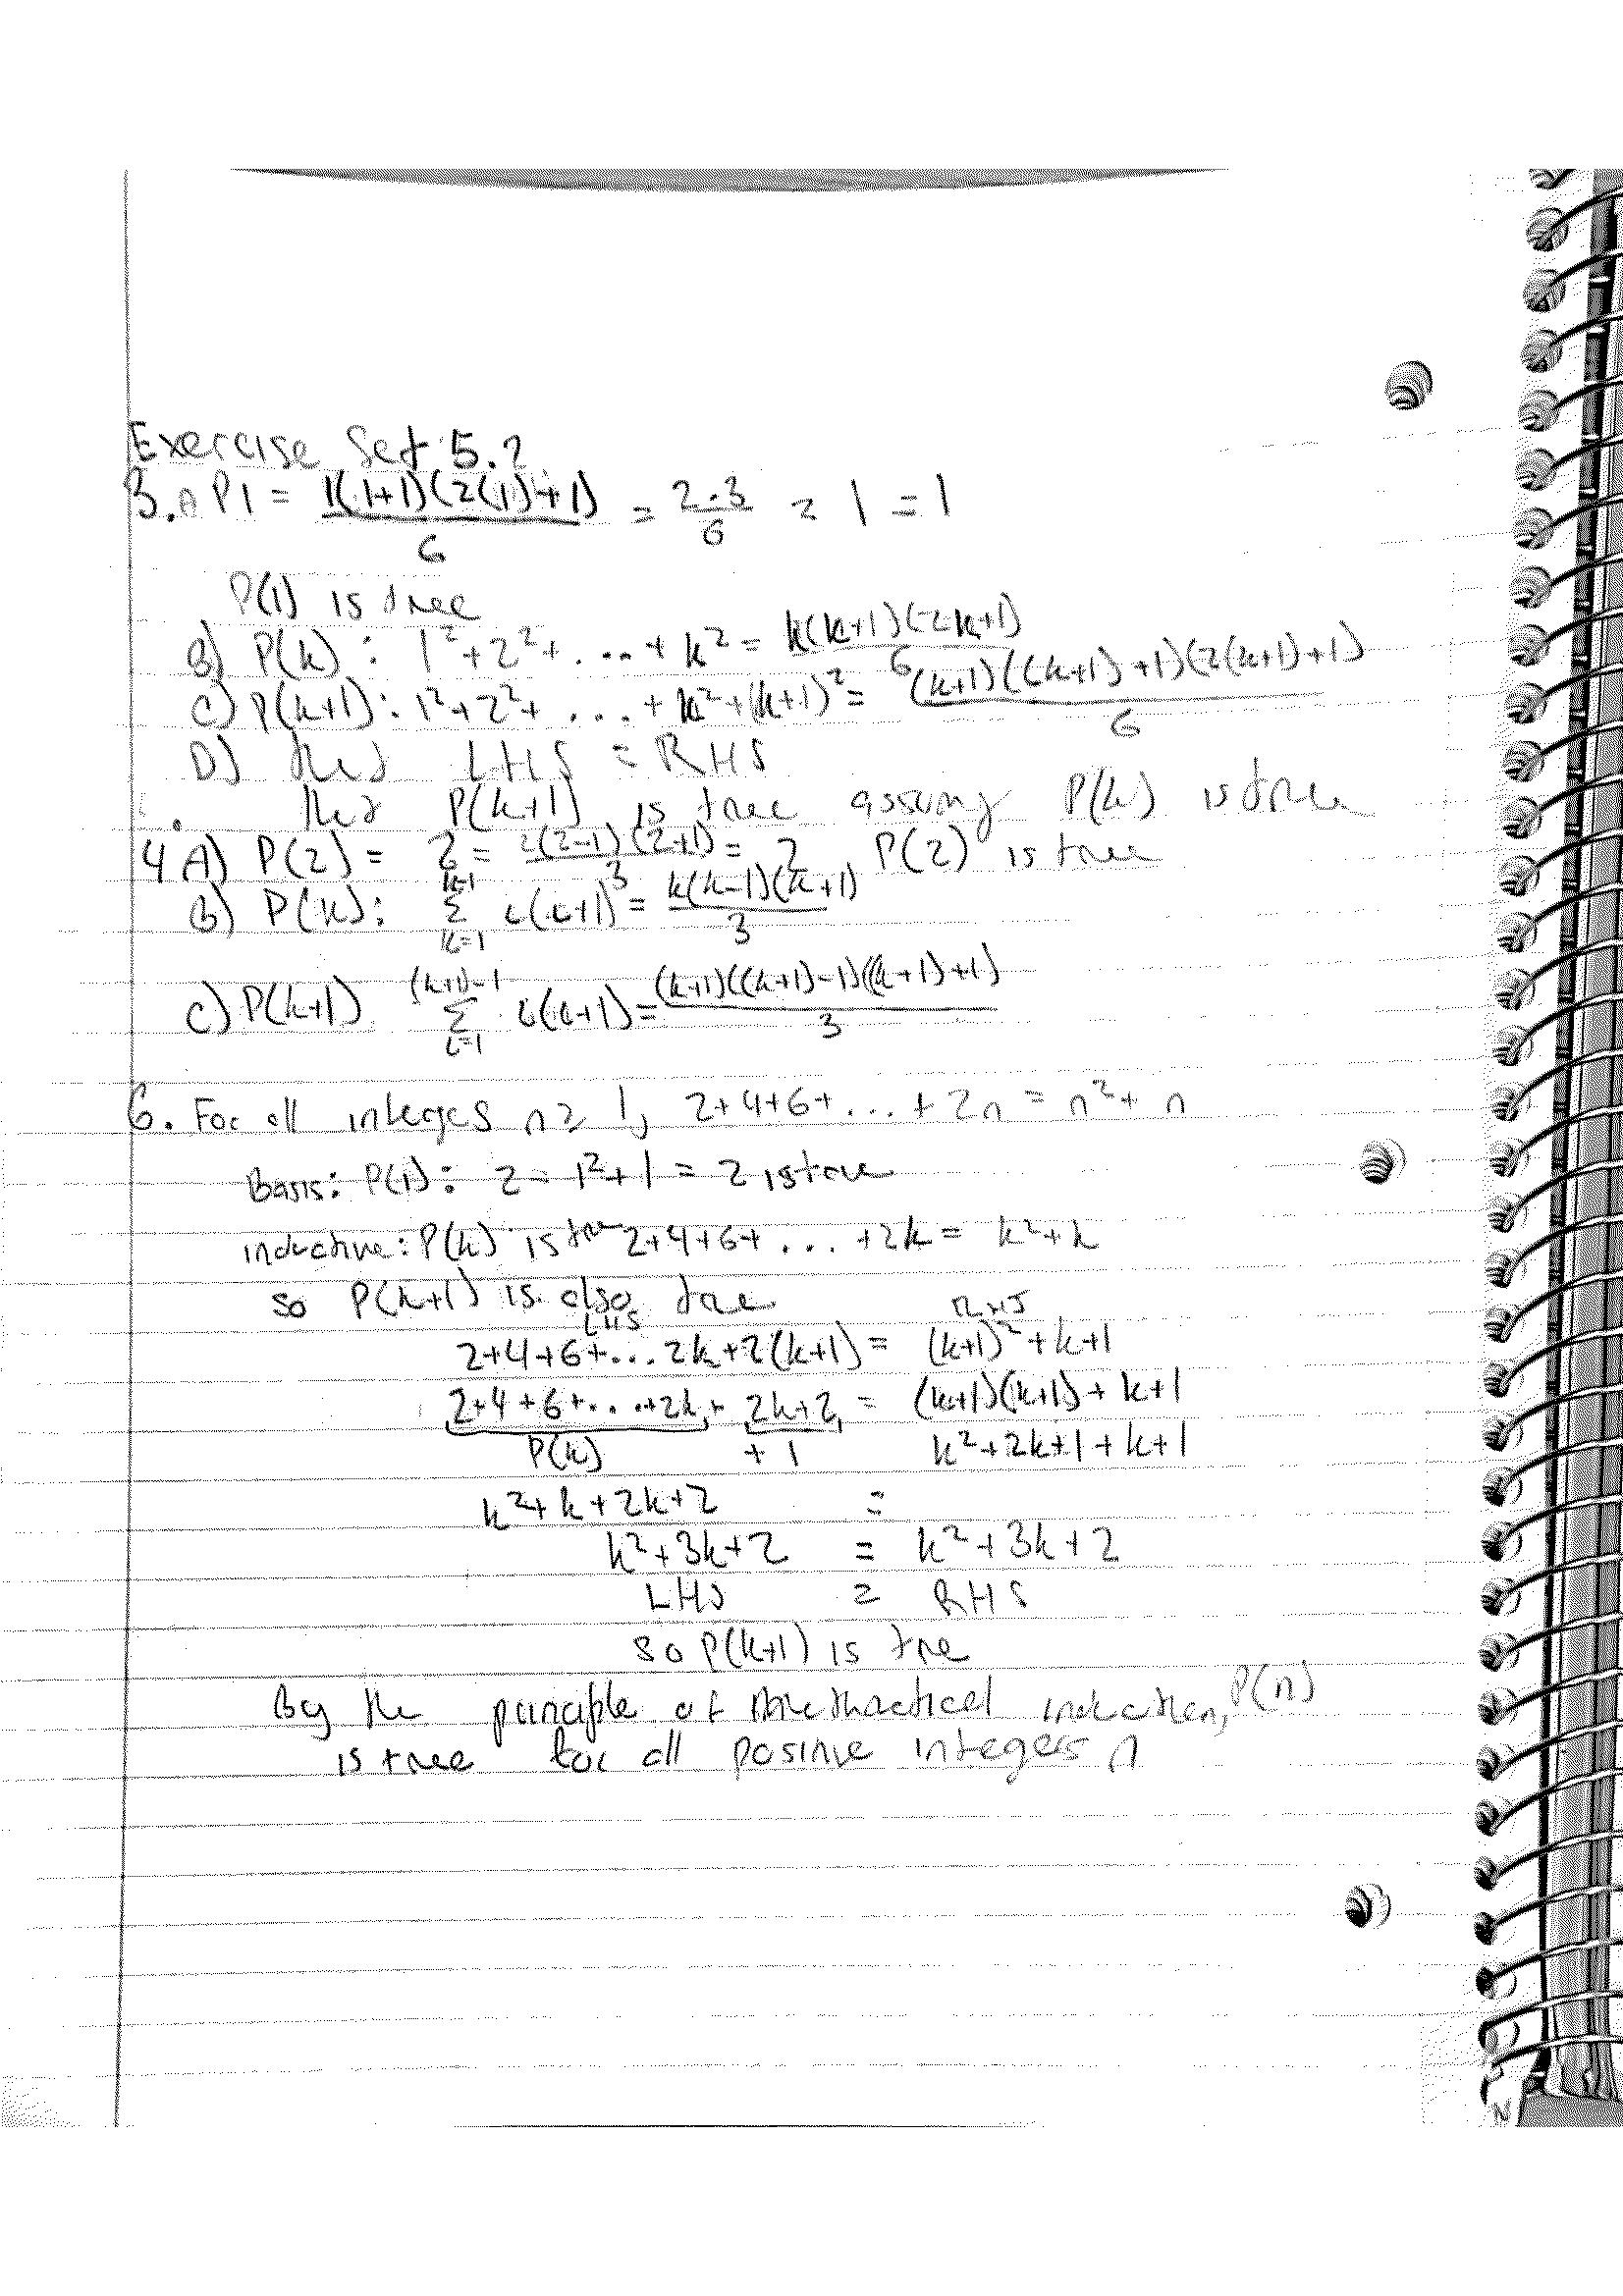 Exercise Set 5.2
3. A P1 = 1(1+1)(2(1)+1) / 6 = 2·3 / 6 = 1 = 1
P(1) is true
B) P(k): 1² + 2² + ... + k² = k(k+1)(2k+1) / 6
C) P(k+1): 1² + 2² + ... + k² + (k+1)² = (k+1)((k+1)+1)(2(k+1)+1) / 6
D) that LHS = RHS
that P(k+1) is true assuming P(k) is true
4 A) P(2) = 2 = 2(2-1)(2+1) / 3 = 2 P(2) is true
B) P(k): k-1 Σ i=1 i(i+1) = k(k-1)(k+1) / 3
C) P(k+1) (k+1)-1 Σ i=1 i(i+1) = (k+1)((k+1)-1)((k+1)+1) / 3
6. For all integers n ≥ 1, 2+4+6+...+2n = n² + n
Basis: P(1): 2 = 1²+1 = 2 is true
inductive: P(k) is true 2+4+6+ ... +2k = k²+k
so P(k+1) is also true
LHS RHS
2+4+6+...2k+2(k+1) = (k+1)²+k+1
2+4+6+...+2k + 2k+2 = (k+1)(k+1)+k+1
P(k) + 1 k²+2k+1+k+1
k²+k+2k+2 =
k²+3k+2 = k²+3k+2
LHS = RHS
so P(k+1) is tre
By the principle of Mathmactical induction, P(n)
is true for all posinve integers n